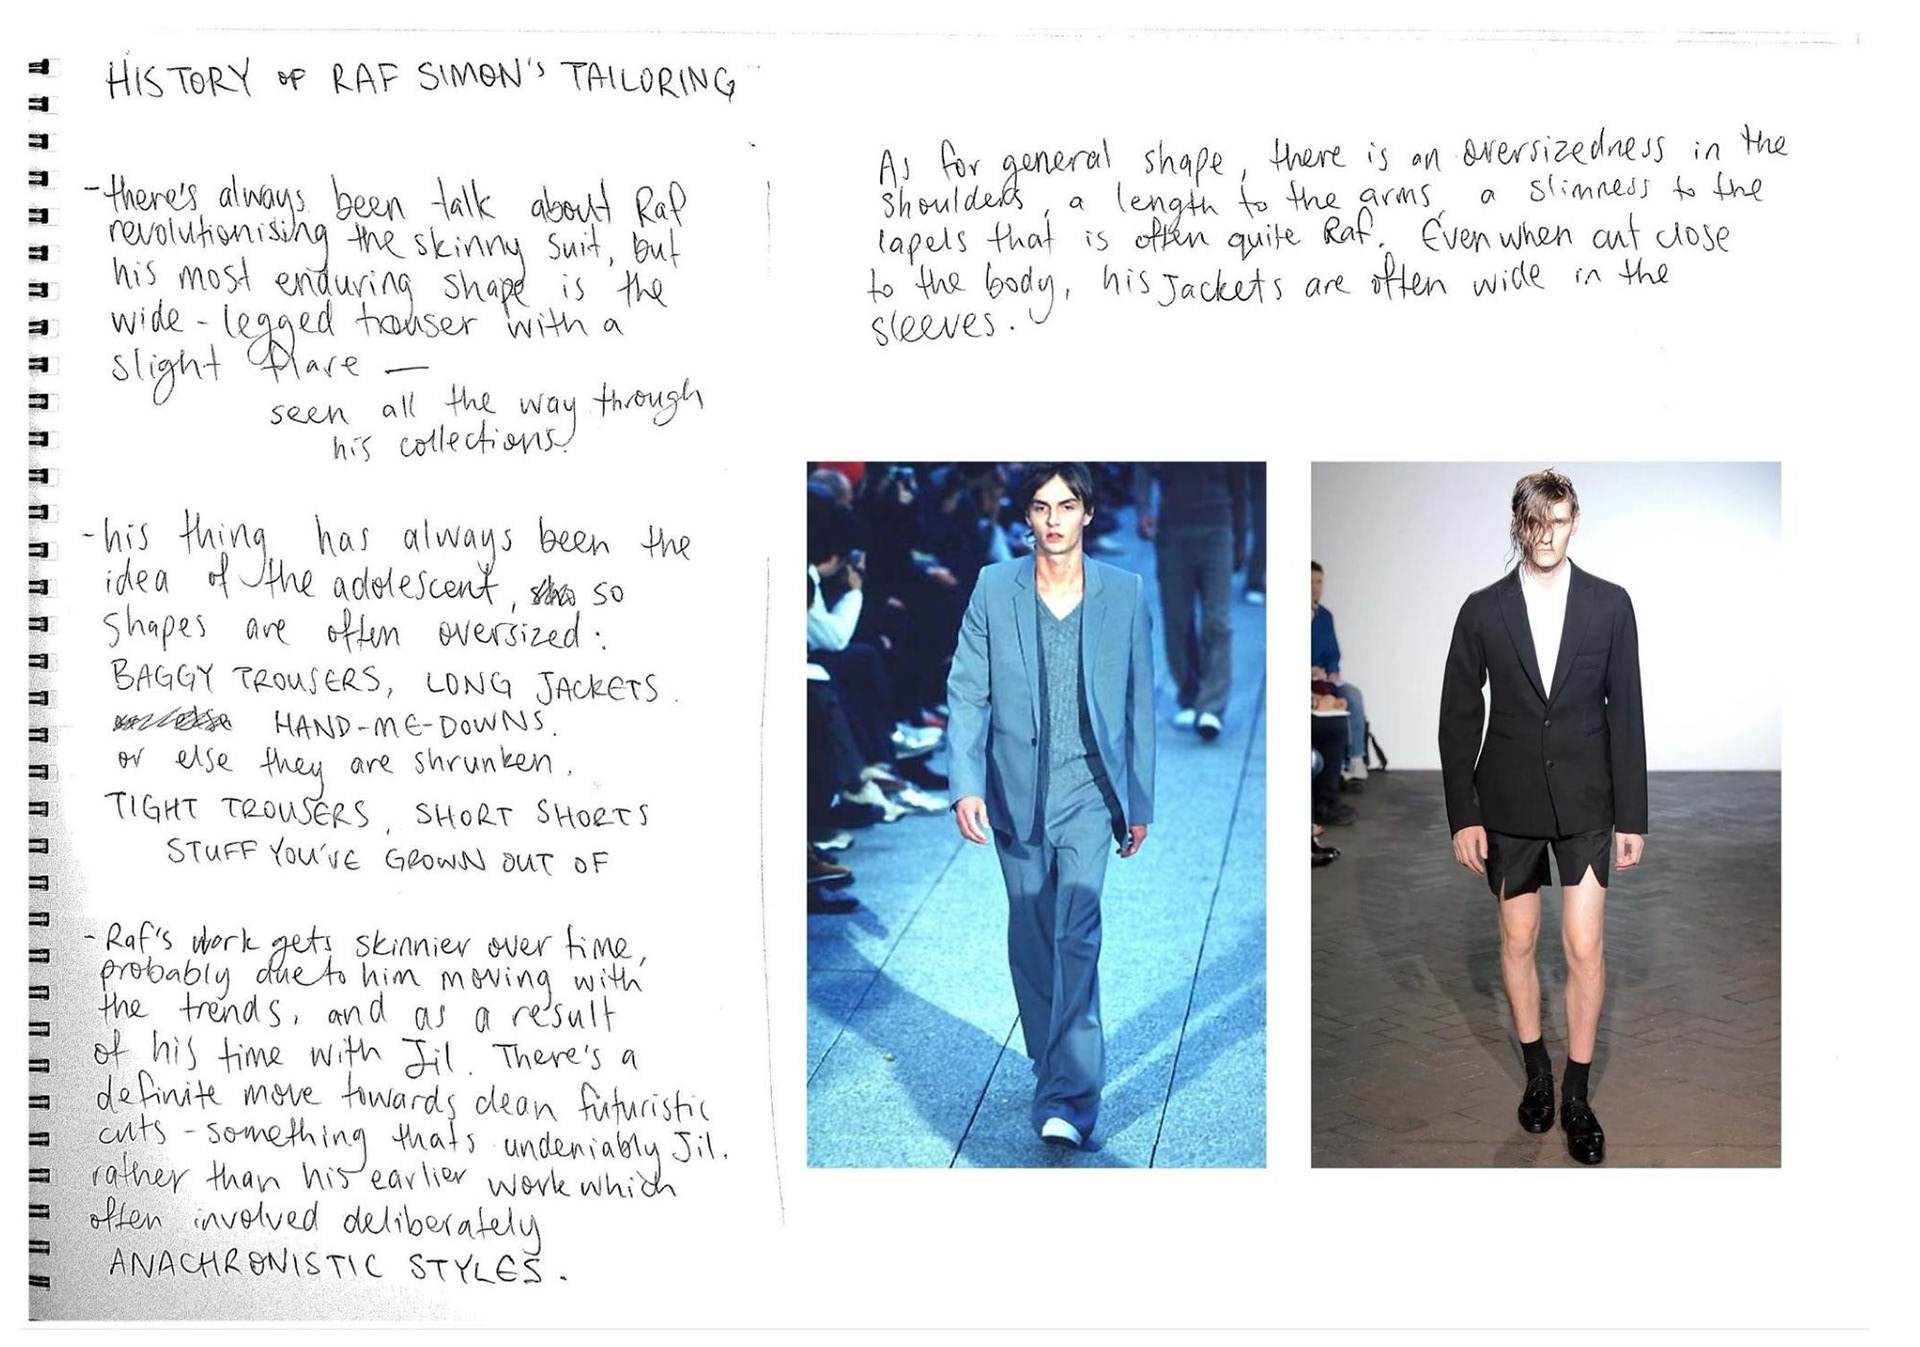 HISTORY OF RAF SIMON'S TAILORING
- there's always been talk about Raf
revolutionising the skinny suit, but
his most enduring shape is the
wide-legged trouser with a
slight flare —
seen all the way through
his collections.
- his thing has always been the
idea of the adolescent, so
shapes are often oversized:
BAGGY TROUSERS, LONG JACKETS.
HAND-ME-DOWNS.
or else they are shrunken,
TIGHT TROUSERS, SHORT SHORTS
STUFF YOU'VE GROWN OUT OF
- Raf's work gets skinnier over time,
probably due to him moving with
the trends, and as a result
of his time with Jil. There's a
definite move towards clean futuristic
cuts - something thats undeniably Jil.
rather than his earlier work which
often involved deliberately
ANACHRONISTIC STYLES.
As for general shape, there is an oversizedness in the
shoulders, a length to the arms, a slimness to the
lapels that is often quite Raf. Even when cut close
to the body, his jackets are often wide in the
sleeves.